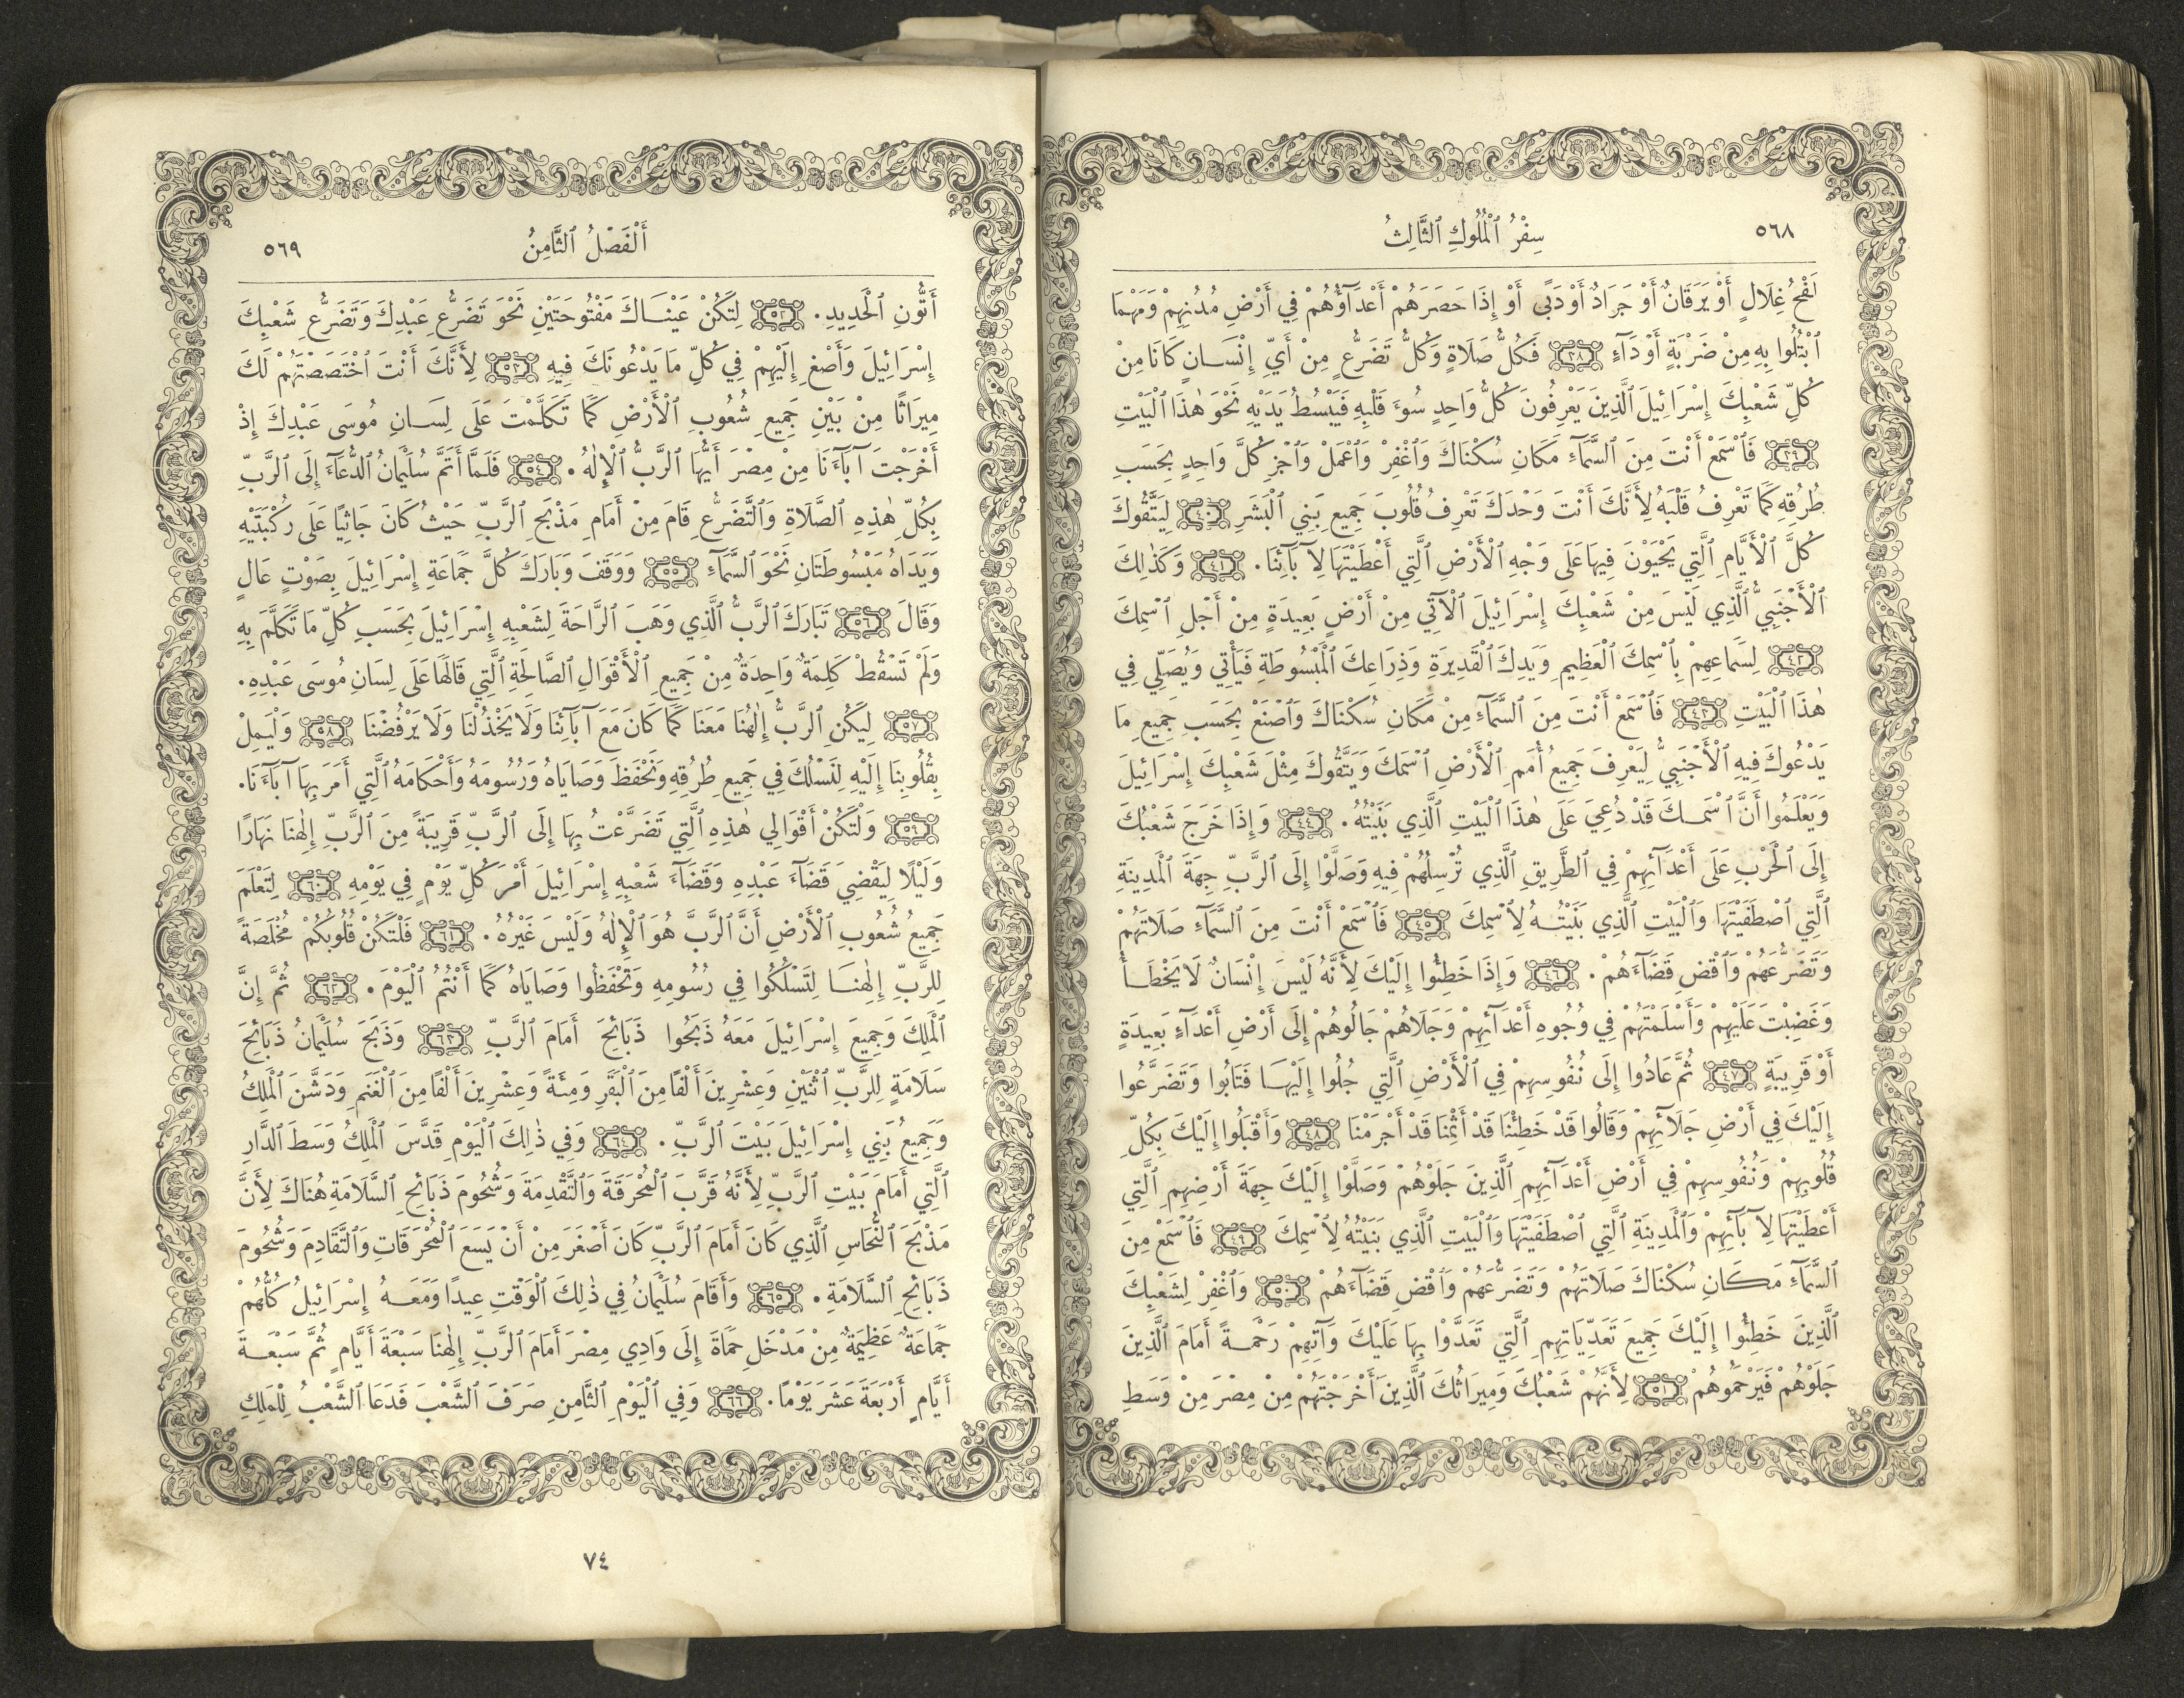 ٥٦٨
سِفْرُ ٱلْمُلُوكِ ٱلثَّالِثُ
لَفْحُ غِلَالٍ أَوْ يَرَقَانٌ أَوْ جَرَادٌ أَوْ دَبًى أَوْ إِذَا حَصَرَهُمْ أَعْدَآؤُهُمْ فِي أَرْضِ مُدُنِهِمْ وَمَهْمَا
ٱبْتُلُوا بِهِ مِنْ ضَرْبَةٍ أَوْ دَآءٍ ٣٨ فَكُلُّ صَلَاةٍ وَكُلُّ تَضَرُّعٍ مِنْ أَيِّ إِنْسَانٍ كَانَ مِنْ
كُلِّ شَعْبِكَ إِسْرَائِيلَ ٱلَّذِينَ يَعْرِفُونَ كُلُّ وَاحِدٍ سُوءَ قَلْبِهِ فَيَبْسُطُ يَدَيْهِ نَحْوَ هٰذَا ٱلْبَيْتِ
٣٩ فَٱسْمَعْ أَنْتَ مِنَ ٱلسَّمَآءِ مَكَانِ سُكْنَاكَ وَٱغْفِرْ وَٱعْمَلْ وَٱجْزِ كُلَّ وَاحِدٍ بِحَسَبِ
طُرُقِهِ كَمَا تَعْرِفُ قَلْبَهُ لِأَنَّكَ أَنْتَ وَحْدَكَ تَعْرِفُ قُلُوبَ جَمِيعِ بَنِي ٱلْبَشَرِ ٤٠ لِيَتَّقُوكَ
كُلَّ ٱلْأَيَّامِ ٱلَّتِي يَحْيَوْنَ فِيهَا عَلَى وَجْهِ ٱلْأَرْضِ ٱلَّتِي أَعْطَيْتَهَا لِآبَآئِنَا. ٤١ وَكَذٰلِكَ
ٱلْأَجْنَبِيُّ ٱلَّذِي لَيْسَ مِنْ شَعْبِكَ إِسْرَائِيلَ ٱلْآتِي مِنْ أَرْضٍ بَعِيدَةٍ مِنْ أَجْلِ ٱسْمِكَ
٤٢ لِسَمَاعِهِمْ بِٱسْمِكَ ٱلْعَظِيمِ وَيَدِكَ ٱلْقَدِيرَةِ وَذِرَاعِكَ ٱلْمَبْسُوطَةِ فَيَأْتِي وَيُصَلِّي فِي
هٰذَا ٱلْبَيْتِ ٤٣ فَٱسْمَعْ أَنْتَ مِنَ ٱلسَّمَآءِ مِنْ مَكَانِ سُكْنَاكَ وَٱصْنَعْ بِحَسَبِ جَمِيعِ مَا
يَدْعُوكَ فِيهِ ٱلْأَجْنَبِيُّ لِيَعْرِفَ جَمِيعُ أُمَمِ ٱلْأَرْضِ ٱسْمَكَ وَيَتَّقُوكَ مِثْلَ شَعْبِكَ إِسْرَائِيلَ
وَيَعْلَمُوا أَنَّ ٱسْمَكَ قَدْ دُعِيَ عَلَى هٰذَا ٱلْبَيْتِ ٱلَّذِي بَنَيْتُهُ. ٤٤ وَإِذَا خَرَجَ شَعْبُكَ
إِلَى ٱلْحَرْبِ عَلَى أَعْدَآئِهِمْ فِي ٱلطَّرِيقِ ٱلَّذِي تُرْسِلُهُمْ فِيهِ وَصَلَّوْا إِلَى ٱلرَّبِّ جِهَةَ ٱلْمَدِينَةِ
ٱلَّتِي ٱصْطَفَيْتَهَا وَٱلْبَيْتِ ٱلَّذِي بَنَيْتُهُ لِٱسْمِكَ ٤٥ فَٱسْمَعْ أَنْتَ مِنَ ٱلسَّمَآءِ صَلَاتَهُمْ
وَتَضَرُّعَهُمْ وَٱقْضِ قَضَآءَهُمْ. ٤٦ وَإِذَا خَطِئُوا إِلَيْكَ لِأَنَّهُ لَيْسَ إِنْسَانٌ لَا يَخْطَأُ
وَغَضِبْتَ عَلَيْهِمْ وَأَسْلَمْتَهُمْ فِي وُجُوهِ أَعْدَآئِهِمْ وَجَلَاهُمْ جَالُوهُمْ إِلَى أَرْضِ أَعْدَآءٍ بَعِيدَةٍ
أَوْ قَرِيبَةٍ ٤٧ ثُمَّ عَادُوا إِلَى نُفُوسِهِمْ فِي ٱلْأَرْضِ ٱلَّتِي جُلُوا إِلَيْهَا فَتَابُوا وَتَضَرَّعُوا
إِلَيْكَ فِي أَرْضِ جَلَآئِهِمْ وَقَالُوا قَدْ خَطِئْنَا قَدْ أَثِمْنَا قَدْ أَجْرَمْنَا ٤٨ وَأَقْبَلُوا إِلَيْكَ بِكُلِّ
قُلُوبِهِمْ وَنُفُوسِهِمْ فِي أَرْضِ أَعْدَآئِهِمِ ٱلَّذِينَ جَلَوْهُمْ وَصَلَّوْا إِلَيْكَ جِهَةَ أَرْضِهِمِ ٱلَّتِي
أَعْطَيْتَهَا لِآبَآئِهِمْ وَٱلْمَدِينَةِ ٱلَّتِي ٱصْطَفَيْتَهَا وَٱلْبَيْتِ ٱلَّذِي بَنَيْتُهُ لِٱسْمِكَ ٤٩ فَٱسْمَعْ مِنَ
ٱلسَّمَآءِ مَكَانِ سُكْنَاكَ صَلَاتَهُمْ وَتَضَرُّعَهُمْ وَٱقْضِ قَضَآءَهُمْ ٥٠ وَٱغْفِرْ لِشَعْبِكَ
ٱلَّذِينَ خَطِئُوا إِلَيْكَ جَمِيعَ تَعَدِّيَاتِهِمِ ٱلَّتِي تَعَدَّوْا بِهَا عَلَيْكَ وَآتِهِمْ رَحْمَةً أَمَامَ ٱلَّذِينَ
جَلَوْهُمْ فَيَرْحَمُوهُمْ ٥١ لِأَنَّهُمْ شَعْبُكَ وَمِيرَاثُكَ ٱلَّذِينَ أَخْرَجْتَهُمْ مِنْ مِصْرَ مِنْ وَسَطِ
أَلْفَصْلُ ٱلثَّامِنُ
٥٦٩
أَتُّونِ ٱلْحَدِيدِ. ٥٢ لِتَكُنْ عَيْنَاكَ مَفْتُوحَتَيْنِ نَحْوَ تَضَرُّعِ عَبْدِكَ وَتَضَرُّعِ شَعْبِكَ
إِسْرَائِيلَ وَأَصْغِ إِلَيْهِمْ فِي كُلِّ مَا يَدْعُونَكَ فِيهِ ٥٣ لِأَنَّكَ أَنْتَ ٱخْتَصَصْتَهُمْ لَكَ
مِيرَاثًا مِنْ بَيْنِ جَمِيعِ شُعُوبِ ٱلْأَرْضِ كَمَا تَكَلَّمْتَ عَلَى لِسَانِ مُوسَى عَبْدِكَ إِذْ
أَخْرَجْتَ آبَآءَنَا مِنْ مِصْرَ أَيُّهَا ٱلرَّبُّ ٱلْإِلٰهُ. ٥٤ فَلَمَّا أَتَمَّ سُلَيْمَانُ ٱلدُّعَآءَ إِلَى ٱلرَّبِّ
بِكُلِّ هٰذِهِ ٱلصَّلَاةِ وَٱلتَّضَرُّعِ قَامَ مِنْ أَمَامِ مَذْبَحِ ٱلرَّبِّ حَيْثُ كَانَ جَاثِيًا عَلَى رُكْبَتَيْهِ
وَيَدَاهُ مَبْسُوطَتَانِ نَحْوَ ٱلسَّمَآءِ ٥٥ وَوَقَفَ وَبَارَكَ كُلَّ جَمَاعَةِ إِسْرَائِيلَ بِصَوْتٍ عَالٍ
وَقَالَ ٥٦ تَبَارَكَ ٱلرَّبُّ ٱلَّذِي وَهَبَ ٱلرَّاحَةَ لِشَعْبِهِ إِسْرَائِيلَ بِحَسَبِ كُلِّ مَا تَكَلَّمَ بِهِ
وَلَمْ تَسْقُطْ كَلِمَةٌ وَاحِدَةٌ مِنْ جَمِيعِ ٱلْأَقْوَالِ ٱلصَّالِحَةِ ٱلَّتِي قَالَهَا عَلَى لِسَانِ مُوسَى عَبْدِهِ.
٥٧ لِيَكُنِ ٱلرَّبُّ إِلٰهُنَا مَعَنَا كَمَا كَانَ مَعَ آبَآئِنَا وَلَا يَخْذُلْنَا وَلَا يَرْفُضْنَا ٥٨ وَلْيَمِلْ
بِقُلُوبِنَا إِلَيْهِ لِنَسْلُكَ فِي جَمِيعِ طُرُقِهِ وَنَحْفَظَ وَصَايَاهُ وَرُسُومَهُ وَأَحْكَامَهُ ٱلَّتِي أَمَرَ بِهَا آبَآءَنَا.
٥٩ وَلْتَكُنْ أَقْوَالِي هٰذِهِ ٱلَّتِي تَضَرَّعْتُ بِهَا إِلَى ٱلرَّبِّ قَرِيبَةً مِنَ ٱلرَّبِّ إِلٰهِنَا نَهَارًا
وَلَيْلًا لِيَقْضِيَ قَضَآءَ عَبْدِهِ وَقَضَآءَ شَعْبِهِ إِسْرَائِيلَ أَمْرَ كُلِّ يَوْمٍ فِي يَوْمِهِ ٦٠ لِتَعْلَمَ
جَمِيعُ شُعُوبِ ٱلْأَرْضِ أَنَّ ٱلرَّبَّ هُوَ ٱلْإِلٰهُ وَلَيْسَ غَيْرُهُ. ٦١ فَلْتَكُنْ قُلُوبُكُمْ مُخْلَصَةً
لِلرَّبِّ إِلٰهِنَا لِتَسْلُكُوا فِي رُسُومِهِ وَتَحْفَظُوا وَصَايَاهُ كَمَا أَنْتُمُ ٱلْيَوْمَ. ٦٢ ثُمَّ إِنَّ
ٱلْمَلِكَ وَجَمِيعَ إِسْرَائِيلَ مَعَهُ ذَبَحُوا ذَبَائِحَ أَمَامَ ٱلرَّبِّ ٦٣ وَذَبَحَ سُلَيْمَانُ ذَبَائِحَ
سَلَامَةٍ لِلرَّبِّ ٱثْنَيْنِ وَعِشْرِينَ أَلْفًا مِنَ ٱلْبَقَرِ وَمِئَةً وَعِشْرِينَ أَلْفًا مِنَ ٱلْغَنَمِ وَدَشَّنَ ٱلْمَلِكُ
وَجَمِيعُ بَنِي إِسْرَائِيلَ بَيْتَ ٱلرَّبِّ. ٦٤ وَفِي ذٰلِكَ ٱلْيَوْمِ قَدَّسَ ٱلْمَلِكُ وَسَطَ ٱلدَّارِ
ٱلَّتِي أَمَامَ بَيْتِ ٱلرَّبِّ لِأَنَّهُ قَرَّبَ ٱلْمُحْرَقَةَ وَٱلتَّقْدِمَةَ وَشُحُومَ ذَبَائِحِ ٱلسَّلَامَةِ هُنَاكَ لِأَنَّ
مَذْبَحَ ٱلنُّحَاسِ ٱلَّذِي كَانَ أَمَامَ ٱلرَّبِّ كَانَ أَصْغَرَ مِنْ أَنْ يَسَعَ ٱلْمُحْرَقَاتِ وَٱلتَّقَادِمَ وَشُحُومَ
ذَبَائِحِ ٱلسَّلَامَةِ. ٦٥ وَأَقَامَ سُلَيْمَانُ فِي ذٰلِكَ ٱلْوَقْتِ عِيدًا وَمَعَهُ إِسْرَائِيلُ كُلُّهُمْ
جَمَاعَةٌ عَظِيمَةٌ مِنْ مَدْخَلِ حَمَاةَ إِلَى وَادِي مِصْرَ أَمَامَ ٱلرَّبِّ إِلٰهِنَا سَبْعَةَ أَيَّامٍ ثُمَّ سَبْعَةَ
أَيَّامٍ أَرْبَعَةَ عَشَرَ يَوْمًا. ٦٦ وَفِي ٱلْيَوْمِ ٱلثَّامِنِ صَرَفَ ٱلشَّعْبَ فَدَعَا ٱلشَّعْبُ لِلْمَلِكِ
٧٤